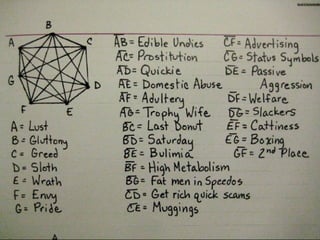 B
A
C
G
D
F
E
A= Lust
B= Gluttony
C= Greed
D= Sloth
E= Wrath
F= Envy
G= Pride
AB= Edible Undies
AC= Prostitution
AD= Quickie
AE= Domestic Abuse
AF= Adultery
AG= Trophy Wife
BC= Last Donut
BD= Saturday
BE= Bulimia
BF= High Metabolism
BG= Fat men in Speedos
CD= Get rich quick scams
CE= Muggings
CF= Advertising
CG= Status Symbols
DE= Passive
Aggression
DF= Welfare
DG= Slackers
EF= Cattiness
EG= Boxing
GF= 2nd Place